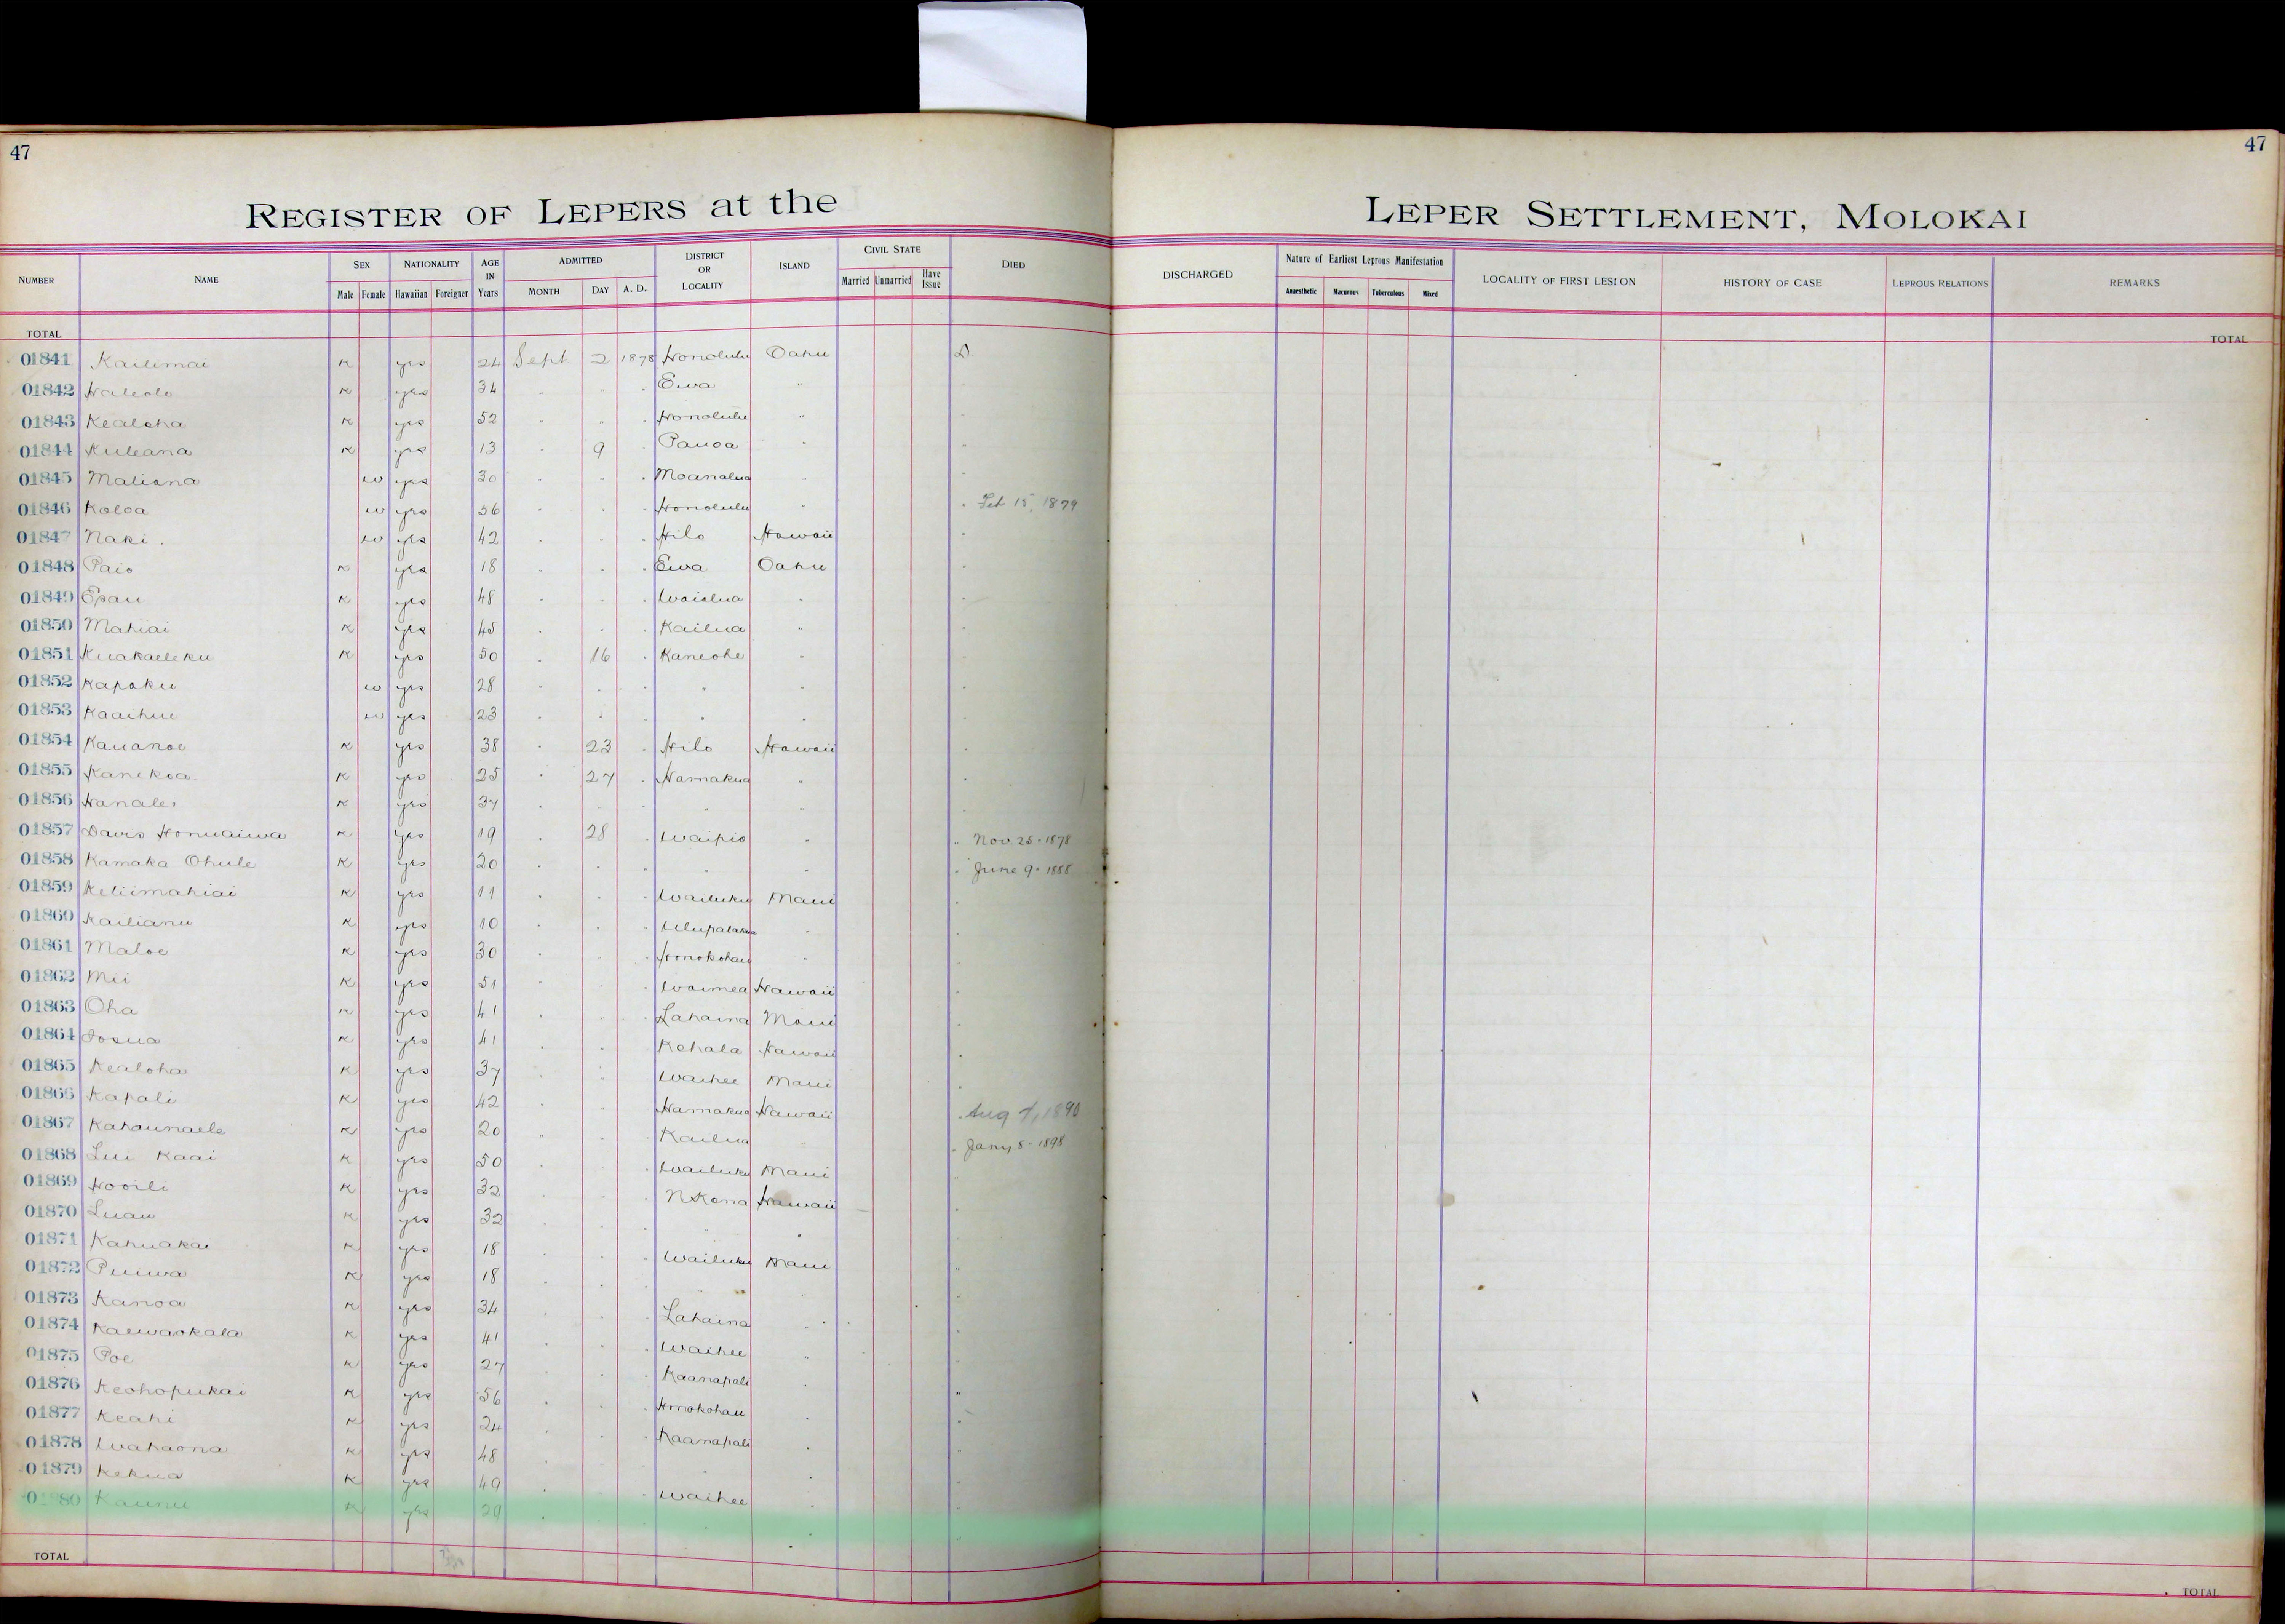 47
47
REGISTER OF LEPERS at the
LEPER SETTLEMENT, MOLOKAI
NUMBER NAME SEX Male Female NATIONALITY Hawaiian Foreigner AGE IN Years ADMITTED MONTH DAY A. D. DISTRICT OR LOCALITY ISLAND CIVIL STATE Married Unmarried Have Issue DIED
DISCHARGED Nature of Earliest Leprous Manifestation Anaesthetic Macurous Tuberculous Mixed LOCALITY OF FIRST LESION HISTORY OF CASE LEPROUS RELATIONS REMARKS
TOTAL
TOTAL
01841 Kailimai K yes 24 Sept 2 1878 Honolulu Oahu D
01842 Haleole K yes 34 " " " Ewa "
01843 Kealoha K yes 52 " " " Honolulu "
01844 Kuleana K yes 13 " 9 " Pauoa "
01845 Maliana w yes 30 " " " Moanalua "
01846 Koloa w yes 56 " " " Honolulu " " Feb 15, 1879
01847 Naki w yes 42 " " " Hilo Hawaii "
01848 Paio K yes 18 " " " Ewa Oahu "
01849 Epau K yes 48 " " " Waialua " "
01850 Mahiai K yes 45 " " " Kailua " "
01851 Kuakaeleku K yes 50 " 16 " Kaneohe " "
01852 Kapoku w yes 28 " " " " "
01853 Kaaihue w yes 23 " " " " "
01854 Kauanoe K yes 38 " 23 " Hilo Hawaii "
01855 Kanekoa K yes 25 " 27 " Hamakua " "
01856 Hanalei K yes 37 " " " " " "
01857 Davis Honuaiwa K yes 19 " 28 " Waipio " " Nov 25 - 1878
01858 Kamaka Ohule K yes 20 " " " " " " June 9 - 1888
01859 Keliimahiai K yes 11 " " " Wailuku Maui "
01860 Kailianu K yes 10 " " " Ulupalakua " "
01861 Maloe K yes 30 " " " Honokohau " "
01862 Mii K yes 51 " " " Waimea Hawaii "
01863 Oha K yes 41 " " " Lahaina Maui "
01864 Iosua K yes 41 " " " Kohala Hawaii "
01865 Kealoha K yes 37 " " " Waihee Maui "
01866 Kapali K yes 42 " " " Hamakua Hawaii " Aug 7, 1890
01867 Kahaunaele K yes 20 " " " Kailua " Jany 8 - 1898
01868 Lui Kaai K yes 50 " " " Wailuku Maui "
01869 Hooili K yes 32 " " " N Kona Hawaii "
01870 Luau K yes 32 " " " " "
01871 Kahuakai K yes 18 " " " Wailuku Maui "
01872 Puiwa K yes 18 " " " " "
01873 Kanoa K yes 34 " " " Lahaina " "
01874 Kaewaokala K yes 41 " " " Waihee " "
01875 Poe K yes 27 " " " Kaanapali " "
01876 Keohopukai K yes 56 " " " Honokohau " "
01877 Keahi K yes 24 " " " Kaanapali " "
01878 Wahaona K yes 48 " " " " "
01879 Kekua K yes 49 " " " Waihee " "
01880 Kaunu K yes 29 " " " " "
TOTAL
TOTAL